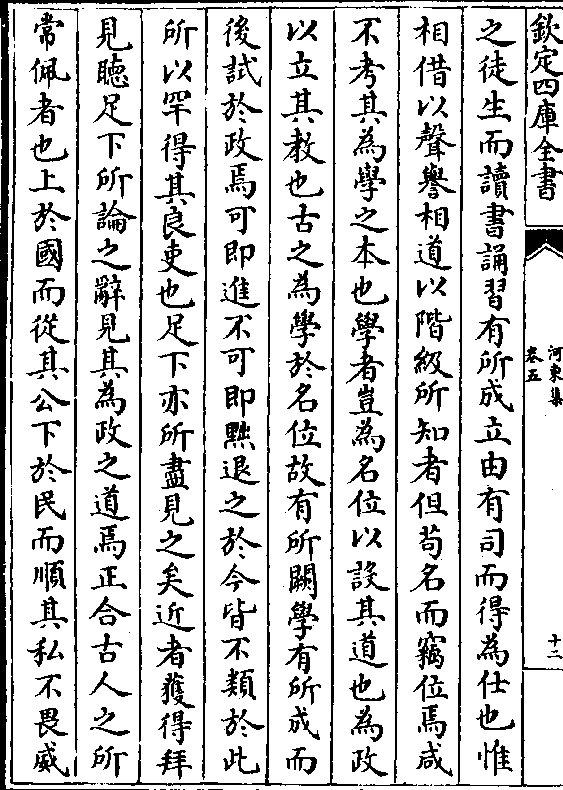 欽定四庫全書
河東集
卷五
十二
之徒生而讀書誦習有所成立由有司而得為仕也惟
相借以聲譽相道以階級所知者但苟名而竊位焉咸
不考其為學之本也學者豈為名位以設其道也為政
以立其教也古之為學於名位故有所闕學有所成而
後試於政焉可即進不可即黜退之於今皆不類於此
所以罕得其良吏也足下亦所盡見之矣近者獲得拜
見聽足下所論之辭見其為政之道焉正合古人之所
常佩者也上於國而從其公下於民而順其私不畏威